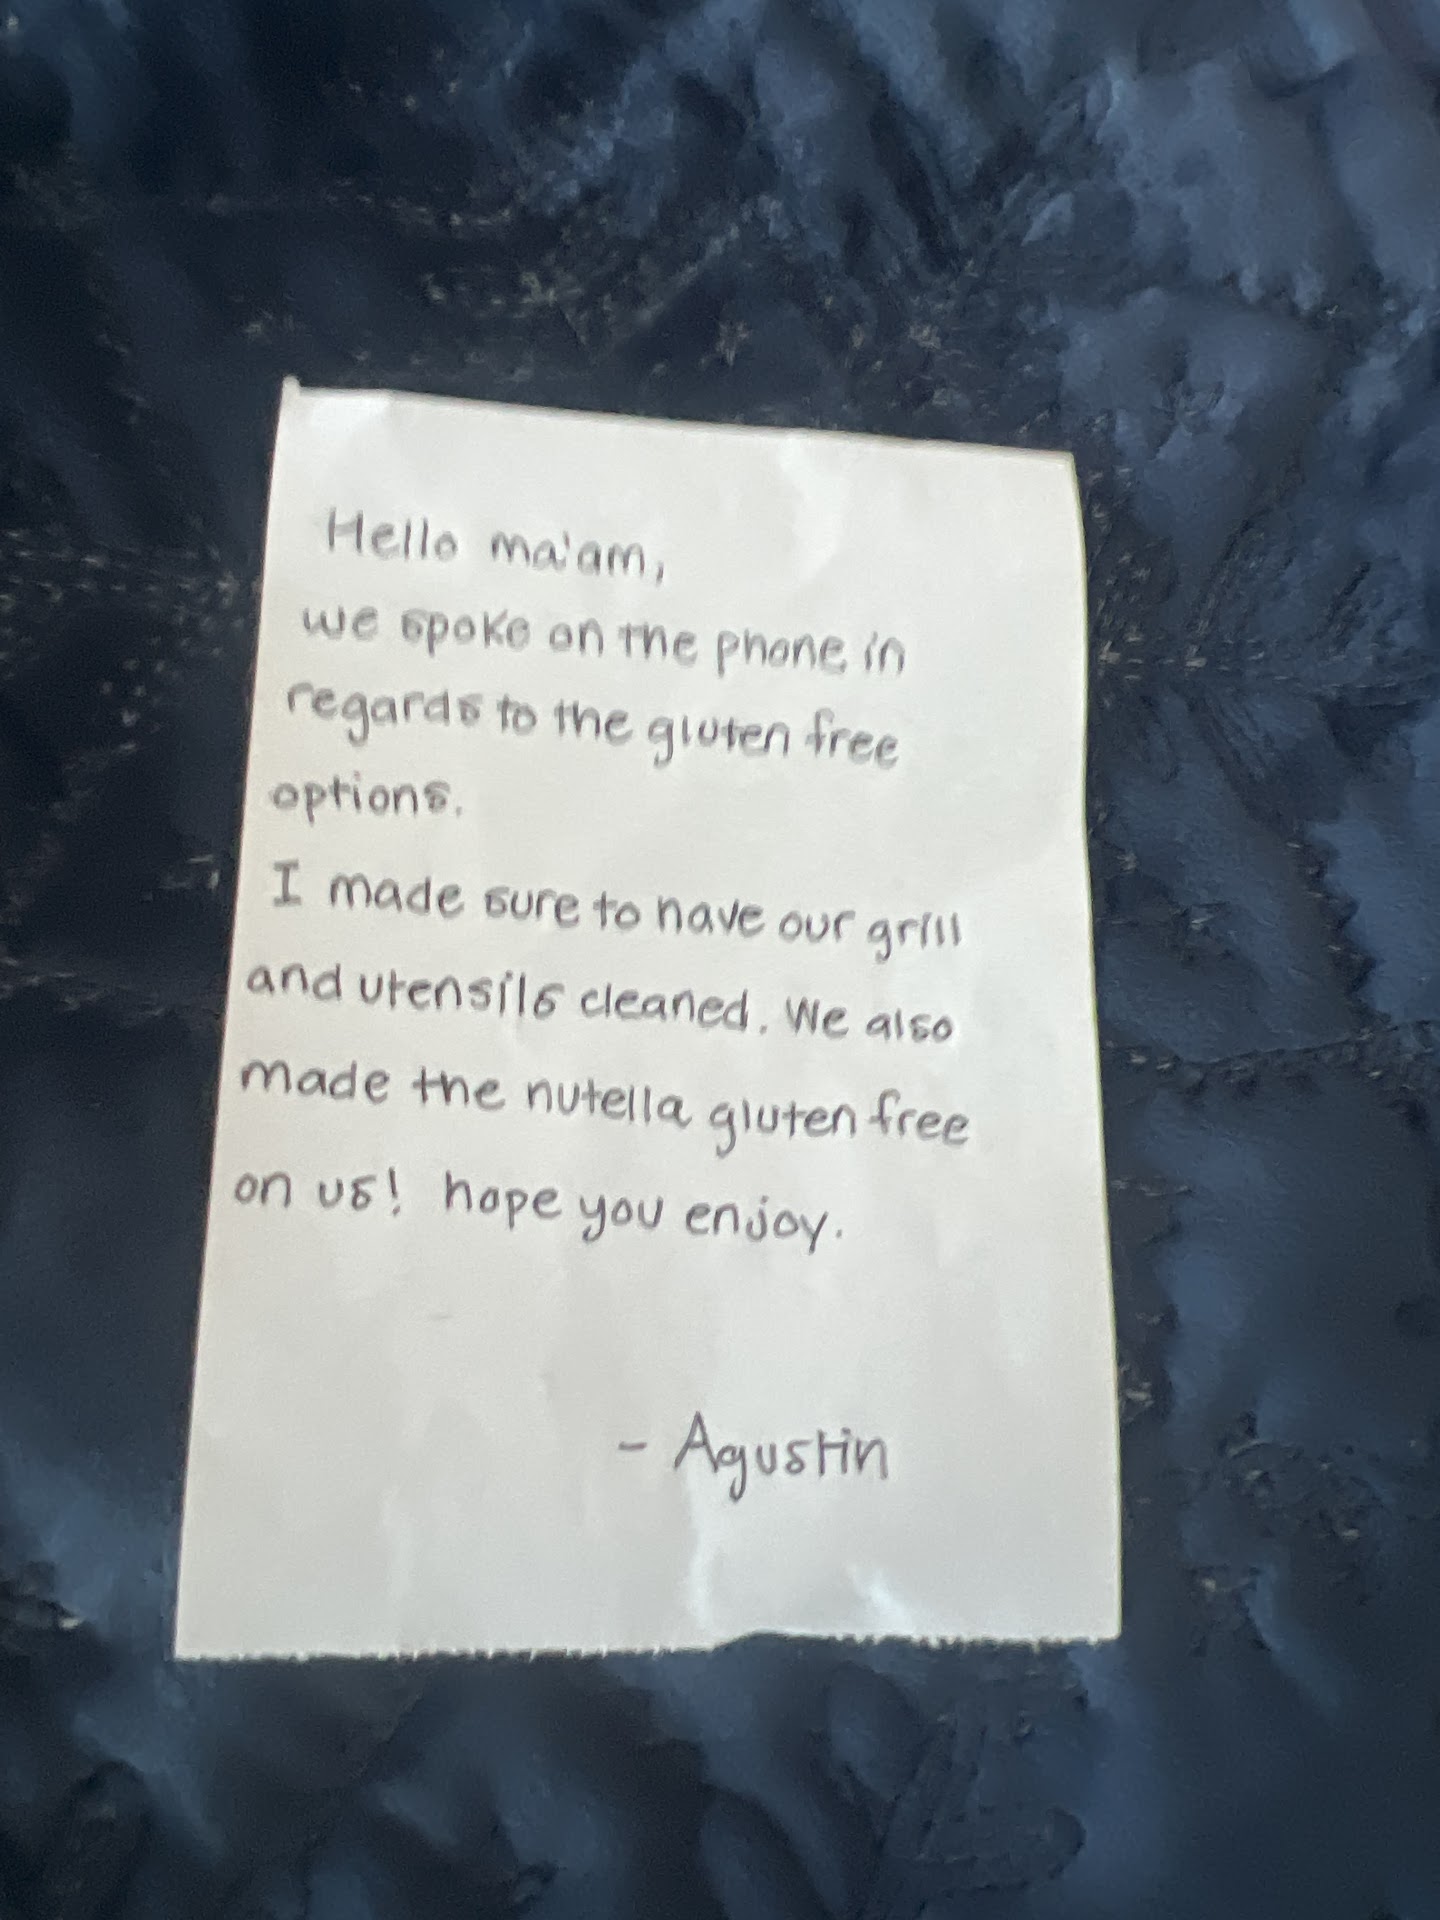 Hello ma'am,
we spoke on the phone in
regards to the gluten free
options.
I made sure to have our grill
and utensils cleaned. We also
made the nutella gluten free
on us! hope you enjoy.
- Agustin